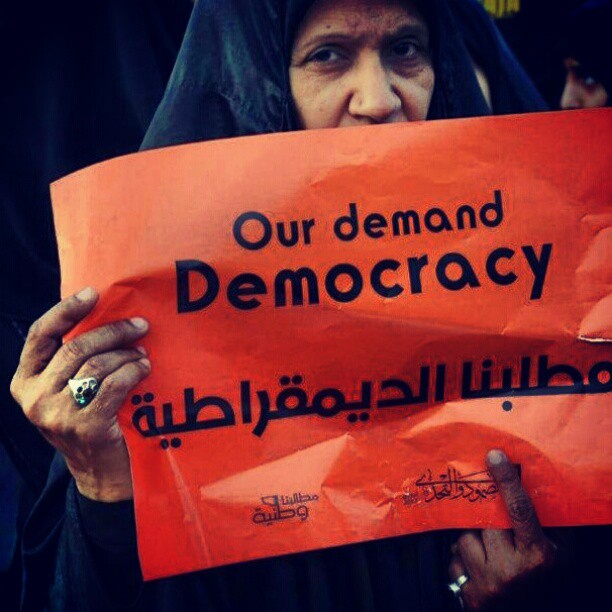 Our demand
Democracy
مطلبنا الديمقراطية
مطالبنا
وطنية
والتحدي